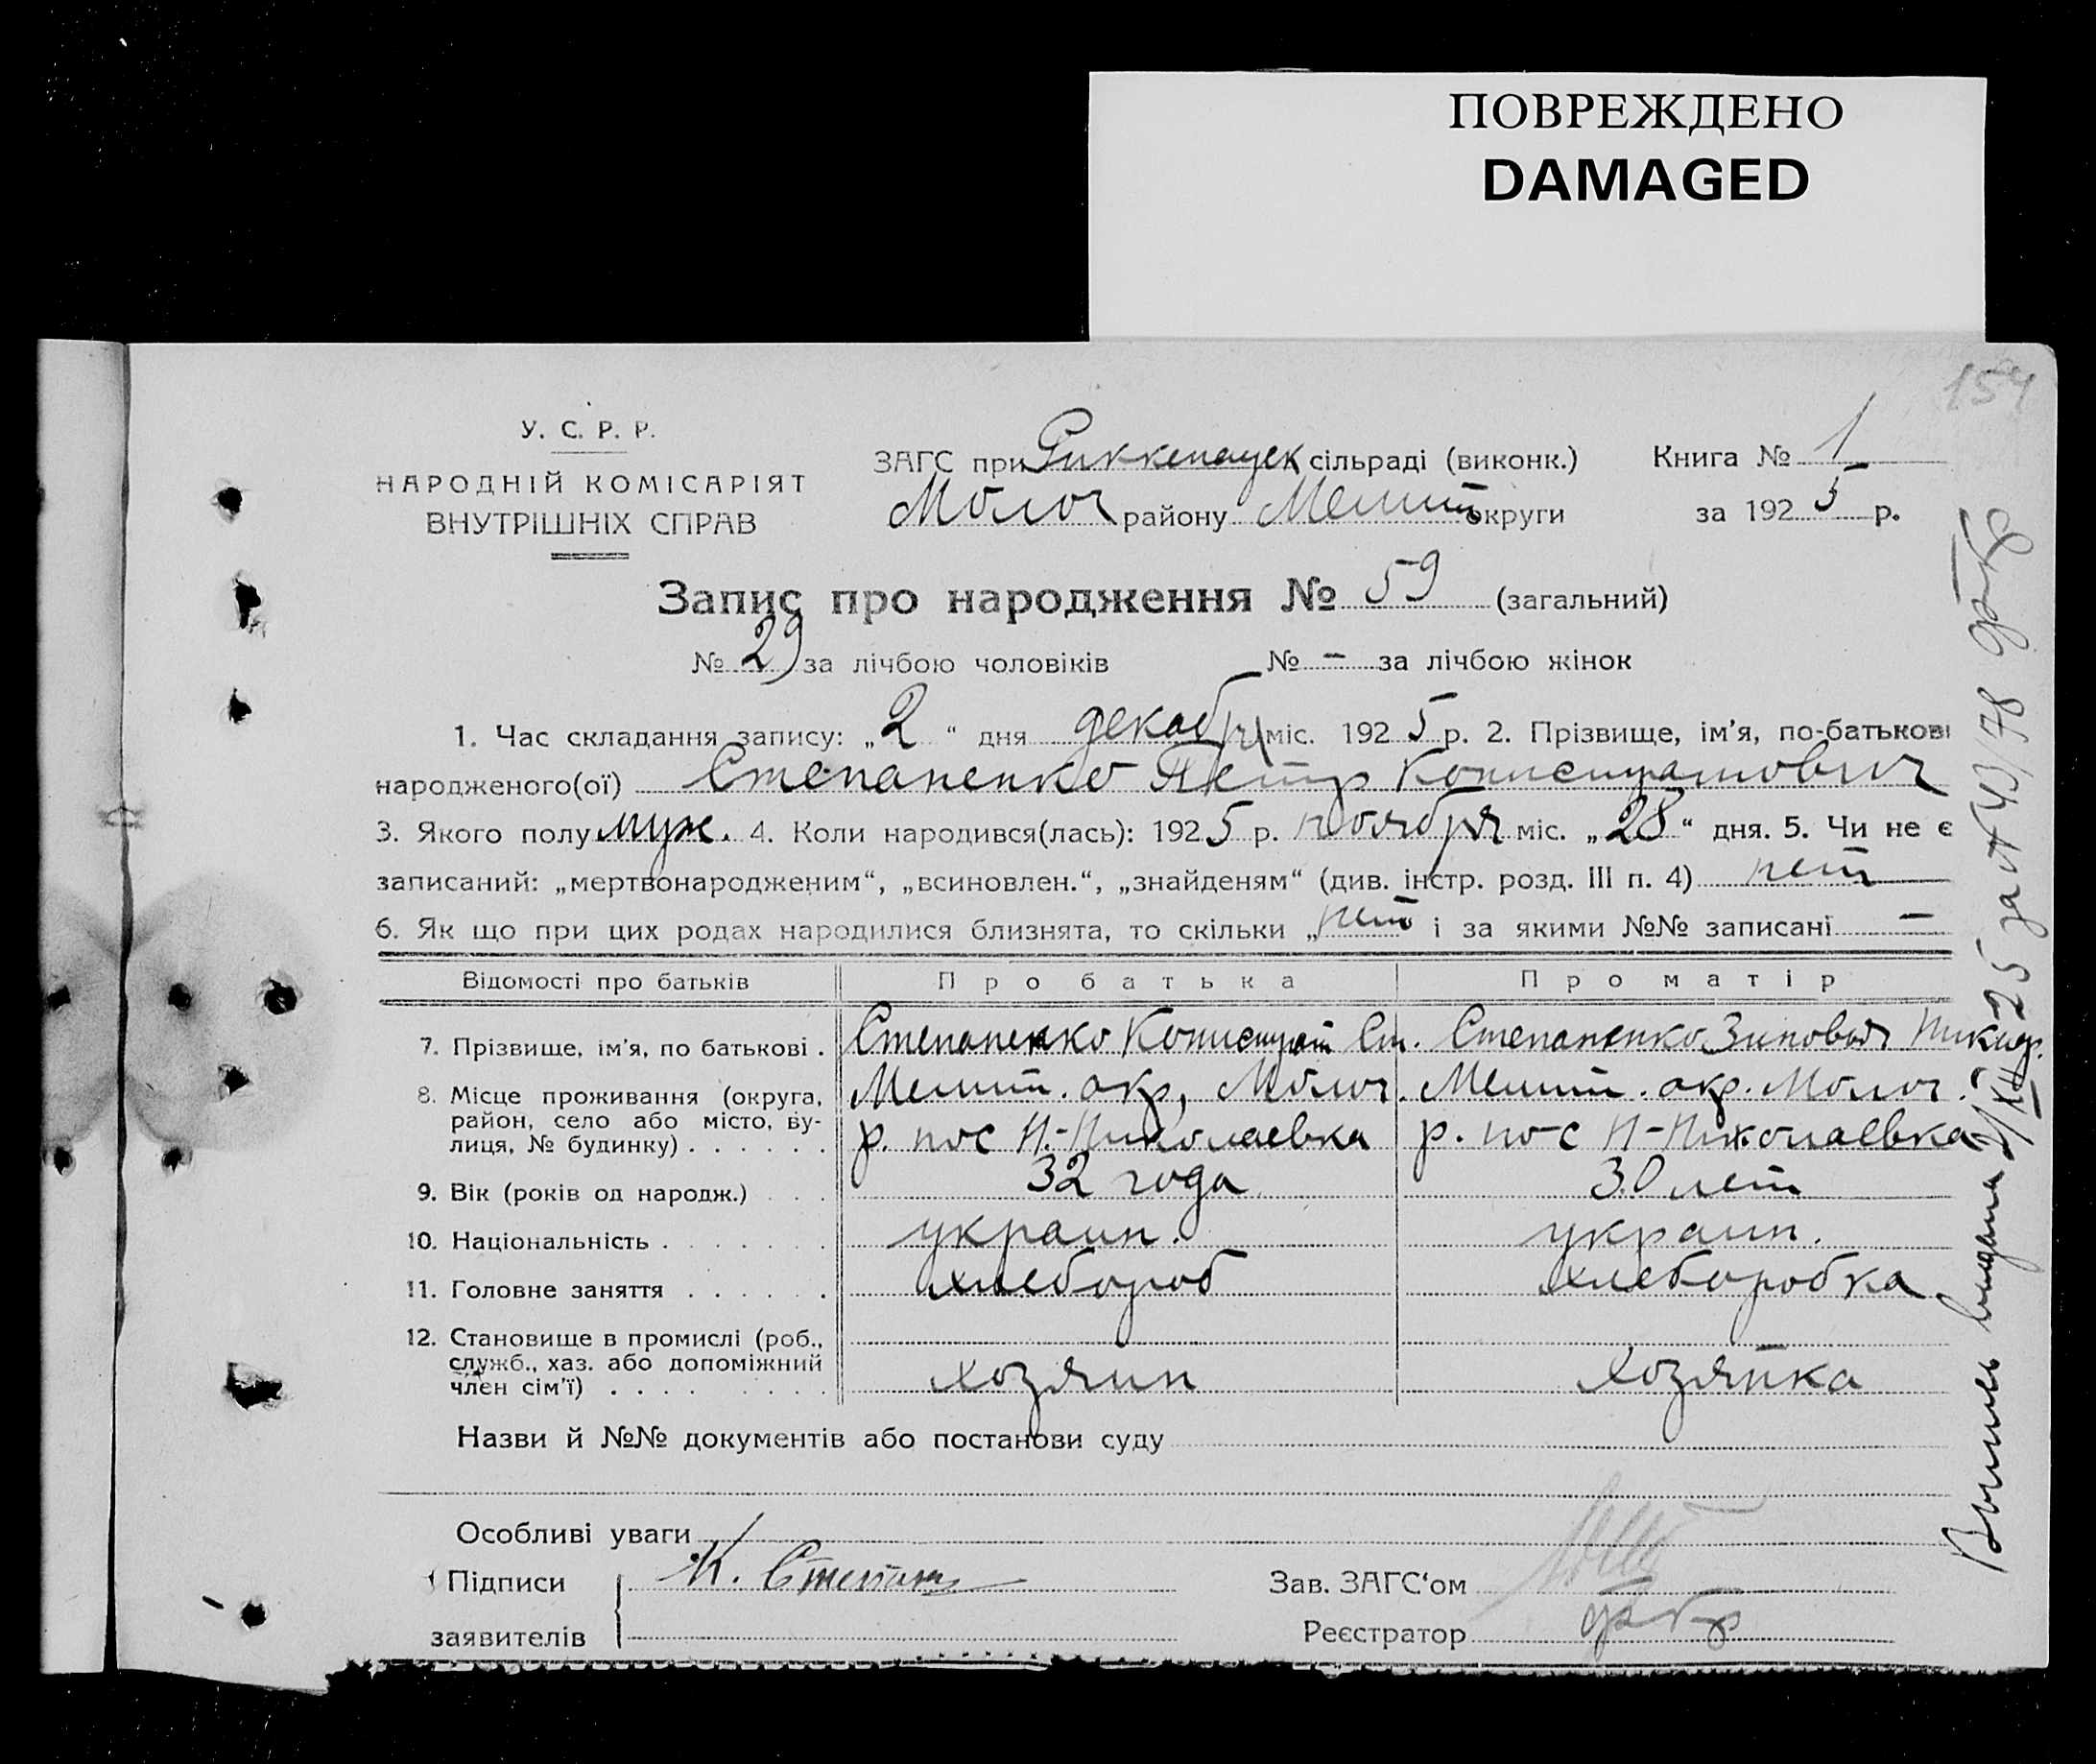 ПОВРЕЖДЕНО
DAMAGED
154
У. С. Р. Р.
НАРОДНІЙ КОМІСАРІЯТ
ВНУТРІШНІХ СПРАВ
ЗАГС при Риккенауск сільраді (виконк.)
Молоч району Мелит округи
Книга № 1
за 1925 р.
Запис про народження № 59 (загальний)
№ 29 за лічбою чоловіків № – за лічбою жінок
1. Час складання запису: „2“ дня декабря міс. 1925 р. 2. Прізвище, ім'я, по-батькові
народженого(ої) Степаненко Петр
3. Якого полу муж. 4. Коли народився(лась): 1925 р. ноября міс. „28“ дня. 5. Чи не є
записаний: „мертвонародженим“, „всиновлен.“, „знайденям“ (див. інстр. розд. III п. 4) нет
6. Як що при цих родах народилися близнята, то скільки „нет і за якими №№ записані –
Відомості про батьків Про батька Про матір
7. Прізвище, ім'я, по батькові . Степаненко Ст. Степаненко Зиновья Никиф.
8. Місце проживання (округа, район, село або місто, вулиця, № будинку) . . . . . . Мелит. окр, Молоч. Мелит. окр. Молоч.
р. пос Н.-Николаевка р. по-с Н-Николаевка
9. Вік (років од народж.) . . . 32 года 30 лет
10. Національність . . . . . . . украин. украин.
11. Головне заняття . . . . . . хлебороб хлеборобка
12. Становище в промислі (роб.,
служб., хаз. або допоміжний
член сім'ї) . . . . . . . . . хозяин хозяйка
Назви й №№ документів або постанови суду
Особливі уваги
Підписи К. Степан Зав. ЗАГС'ом
заявителів Реєстратор
Выпись выдана 2/XII 25 за № 43/78